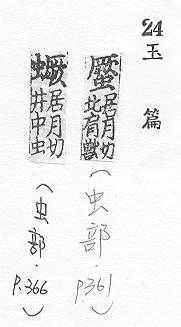 24
玉篇
蟨居月切
北有獸
(虫部.
p361)
蟩居月切
井中虫
(虫部.
p.366)